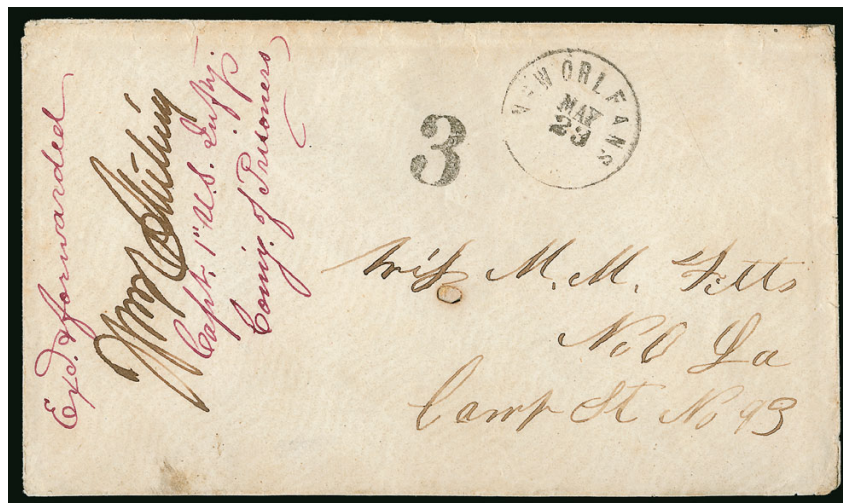 Exd. & forwarded
Capt. 1st U.S. Infty.
Comy. of Prisoners
3
NEW ORLEANS
MAY
23
Miss M. M. Fitts
N.O La
Camp St No 93